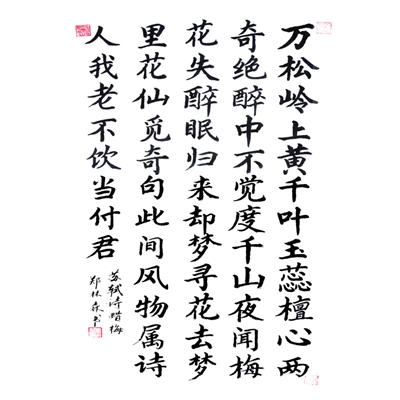 万松岭上黄千叶玉蕊檀心两
奇绝醉中不觉度千山夜闻梅
花失醉眠归来却梦寻花去梦
里花仙觅奇句此间风物属诗
人我老不饮当付君
苏轼诗腊梅
郑林森书